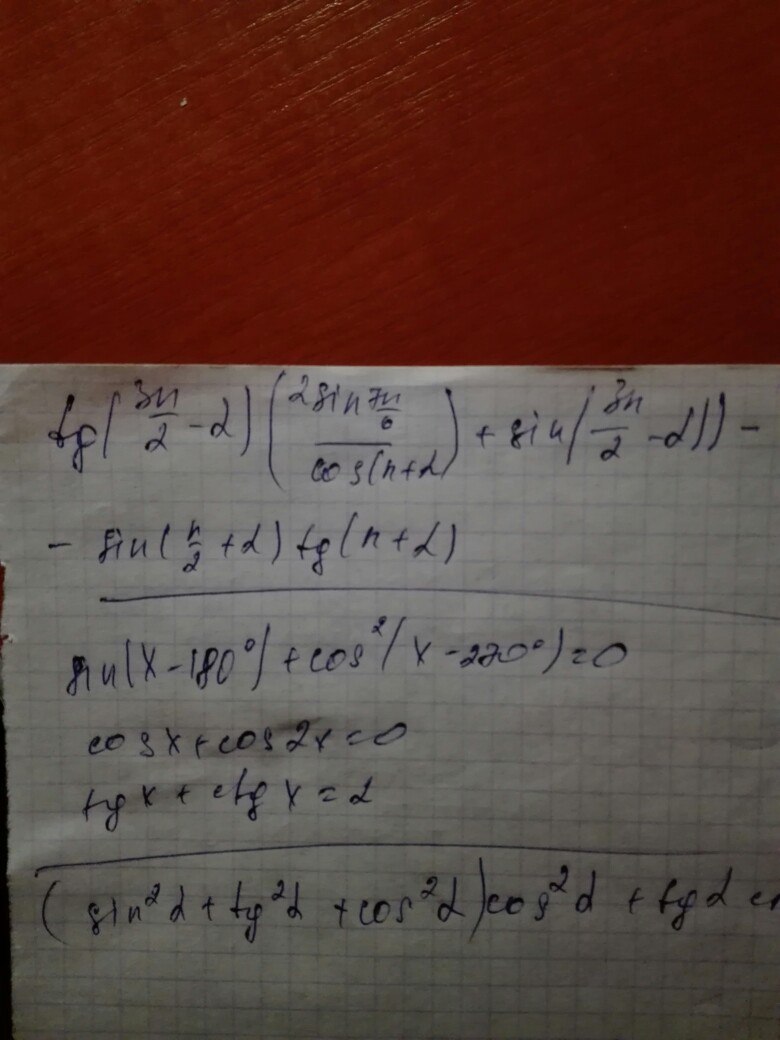 tg(3π/2 - α)(2sin 7π/6 / cos(π+α) + sin(3π/2 - α)) -
- sin(π/2 + α) tg(π + α)
sin(x - 180°) + cos²(x - 270°) = 0
cos x + cos 2x = 0
tg x + ctg x = 2
(sin²α + tg²α + cos²α) cos²α + tg α